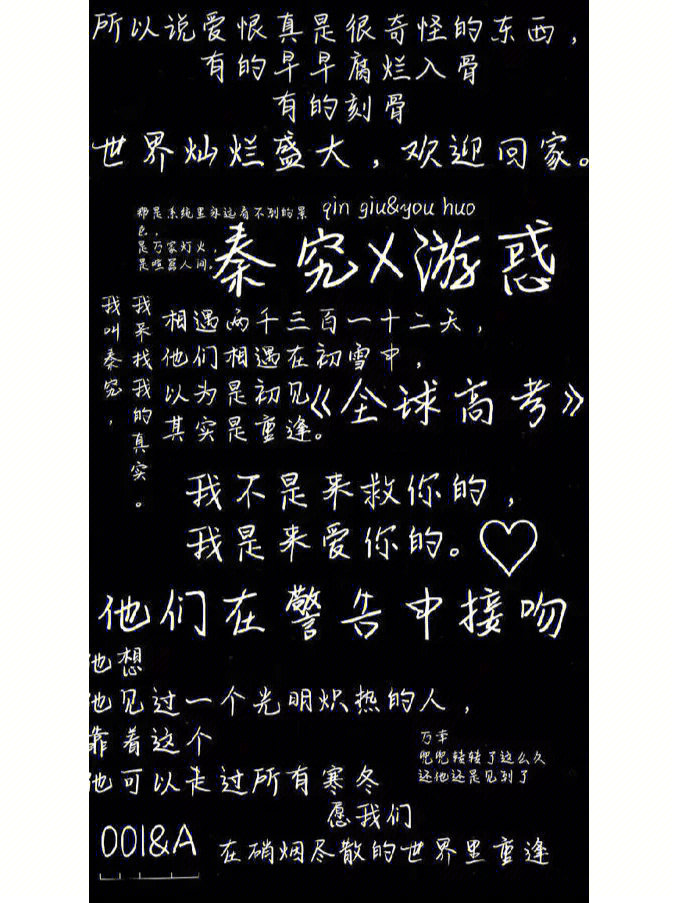 所以说爱恨真是很奇怪的东西，
有的早早腐烂入骨
有的刻骨
世界灿烂盛大，欢迎回家。
都是系统里永远看不到的景
色，
是万家灯火，
是喧嚣人间。
qin giu&you huo
秦究X游惑
我叫秦究，
我来找我的真实。
相遇两千三百一十二天，
他们相遇在初雪中，
以为是初见
其实是重逢。
《全球高考》
我不是来救你的，
我是来爱你的。♡
他们在警告中接吻
他想
他见过一个光明炽热的人，
靠着这个
他可以走过所有寒冬
万幸
兜兜转转了这么久
还他还是见到了
愿我们
001&A
在硝烟尽散的世界里重逢